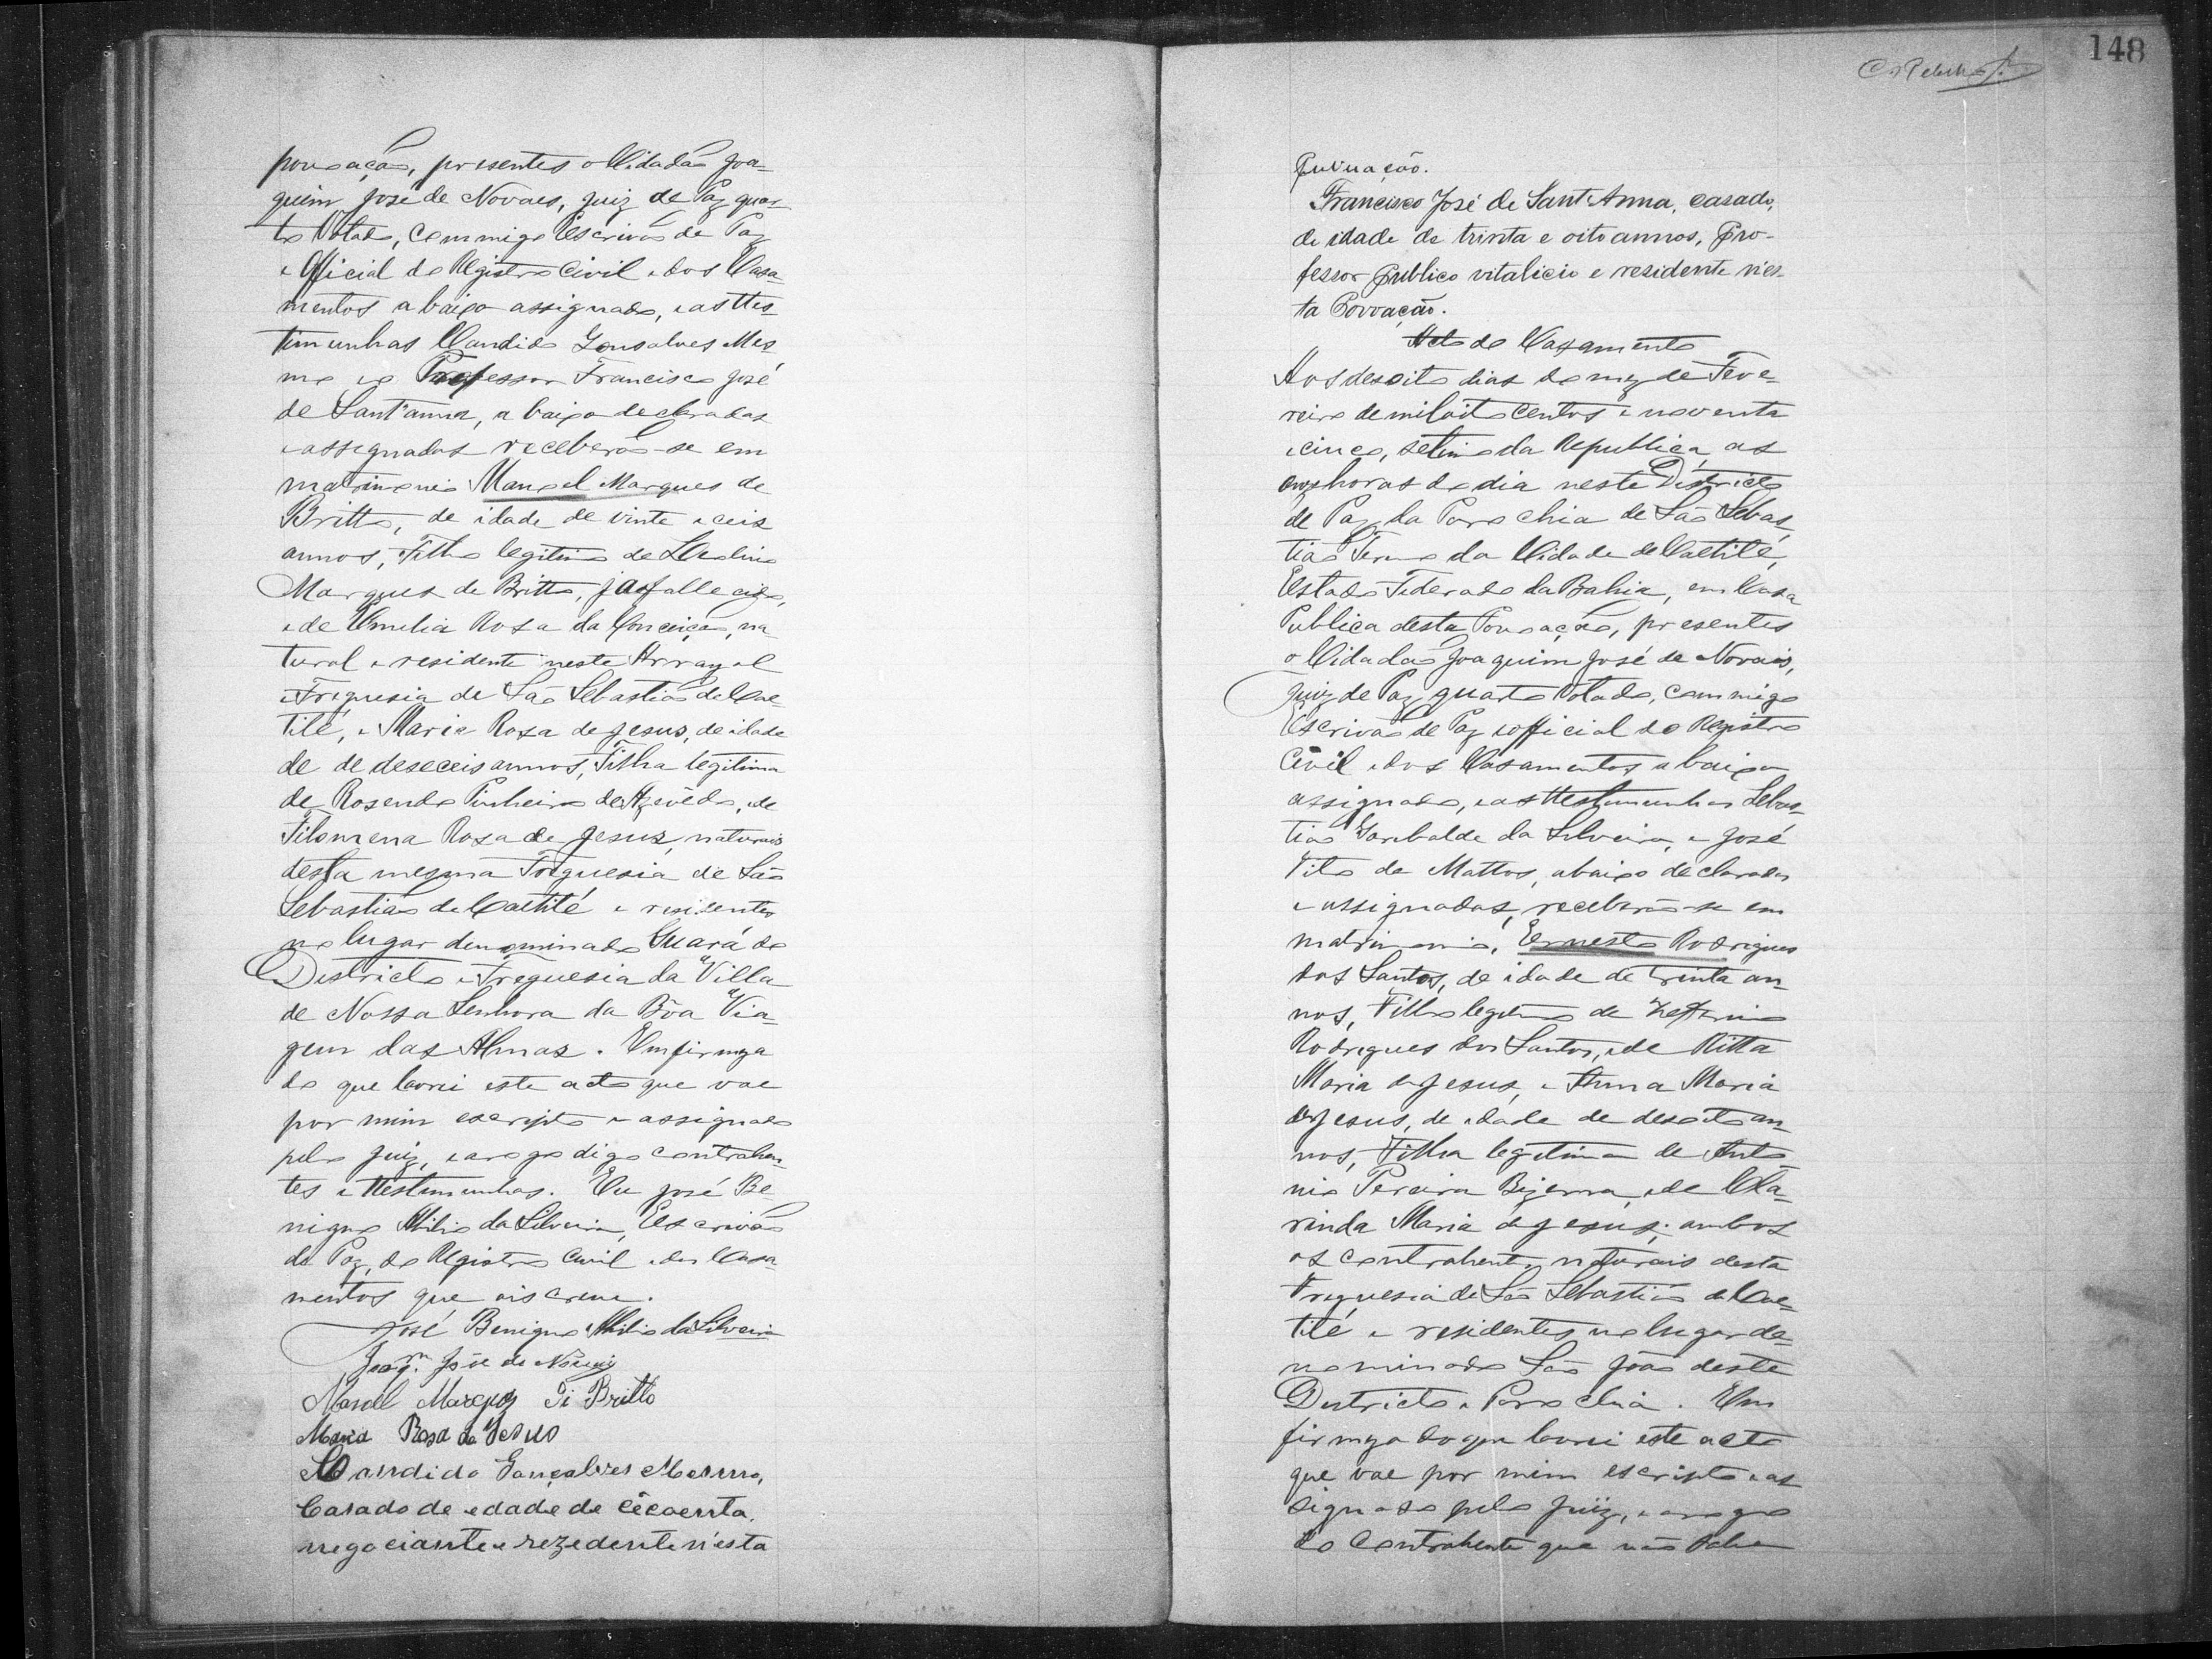 povoação, presentes o Cidadão Joa-
quim José de Novaes, Juiz de Paz quar-
to Votado, Commigo Escrivão de Paz
e Official do Registro Civil e dos Casa-
mentos abaixo assignado, e as ttes-
timunhas Candido Gonsalves Mes-
mo e o Professor Francisco José
de Sant'anna, abaixo declaradas
e assegnadas receberão-se em
matrimonio Manoel Marques de
Britto, de idade de vinte e ceis
annos, Filho legitimo de
Marques de Britto, ja fallecido,
e de Emilia Rosa da Conceição, na-
tural e residente neste Arrayal
e Freguesia de São Sebastião de Cae-
tité, e Maria Roza de Jesus, de idade
de de deseceis annos, Filha legitima
de Rosendo Pinheiro de Azevêdo, e de
Filomena Roza de Jesus, naturais
desta mesma Freguesia de São
Sebastião de Caetité e residentes
no lugar denominado Guará do
Districto e Freguesia da Villa
de Nossa Senhora da Bôa Via-
gem das Almas. Em firmeza
do que lavrei este acto que vae
por mim escripto e assignado
pelo Juiz, e arogo digo contrahen-
tes e ttestimunhas. Eu José Be-
nigno Abilio da Silveira, Escrivão
de Paz, do Registro Civil e dos Casa-
mentos que o iscrevi.
José Benigno Abilio da Silveira
Joaqm. José de Novais
Manoel Marques Di Britto
Maria Rosa de Jesus
Candido Gonçalves Mesmo,
Casado de edade de cicoenta,
negociante e rezedente n'esta
148
Puvuação.
Francisco José de Sant'Anna, casado,
de idade de trinta e oito annos, Pro-
fessor publico vitalicio e residente n'es-
ta Povvação.
Acto de Cazamento
Aos desoito dias do mez de Feve-
reiro de mil oito centos e noventa
e cinco, setimo da Republica, as
onze horas do dia neste Districto
de Paz da Parochia de São Sebas-
tião Termo da Cidade de Caetité,
Estado Federado da Bahia, em Casa
Publica desta Povoação, presentes
o Cidadão Joaquim José de Novais,
Juiz de Paz quarto Votado, commigo
Escrivão de Paz e official do Registro
Civil e dos Casamentos abaixo
assignado, e as ttestimunhas Sebas-
tião Garibalde da Silveira, e José
Tito de Mattos, abaixo declarados
e assignados, receberão-se em
matrimonio, Ernesto Rodrigues
dos Santos, de idade de trinta an-
nos, Filho legitimo de Zeferino
Rodrigues dos Santos, e de Ritta
Maria de Jesus, e Anna Maria
de Jesus, de idade de desoito an-
nos, Filha legitima de Anto-
nio Pereira Bizerra, e de Cla-
rinda Maria de Jesus; ambos
os contrahentes naturais desta
Freguesia de São Sebastião de Cae-
tité e residentes no lugar de-
nominado São João deste
Districto e Parochia. Em
firmeza do que lavrei este acto
que vae por mim escripto e as
signado pelo Juiz, e arogo
do Contrahente que não sabe